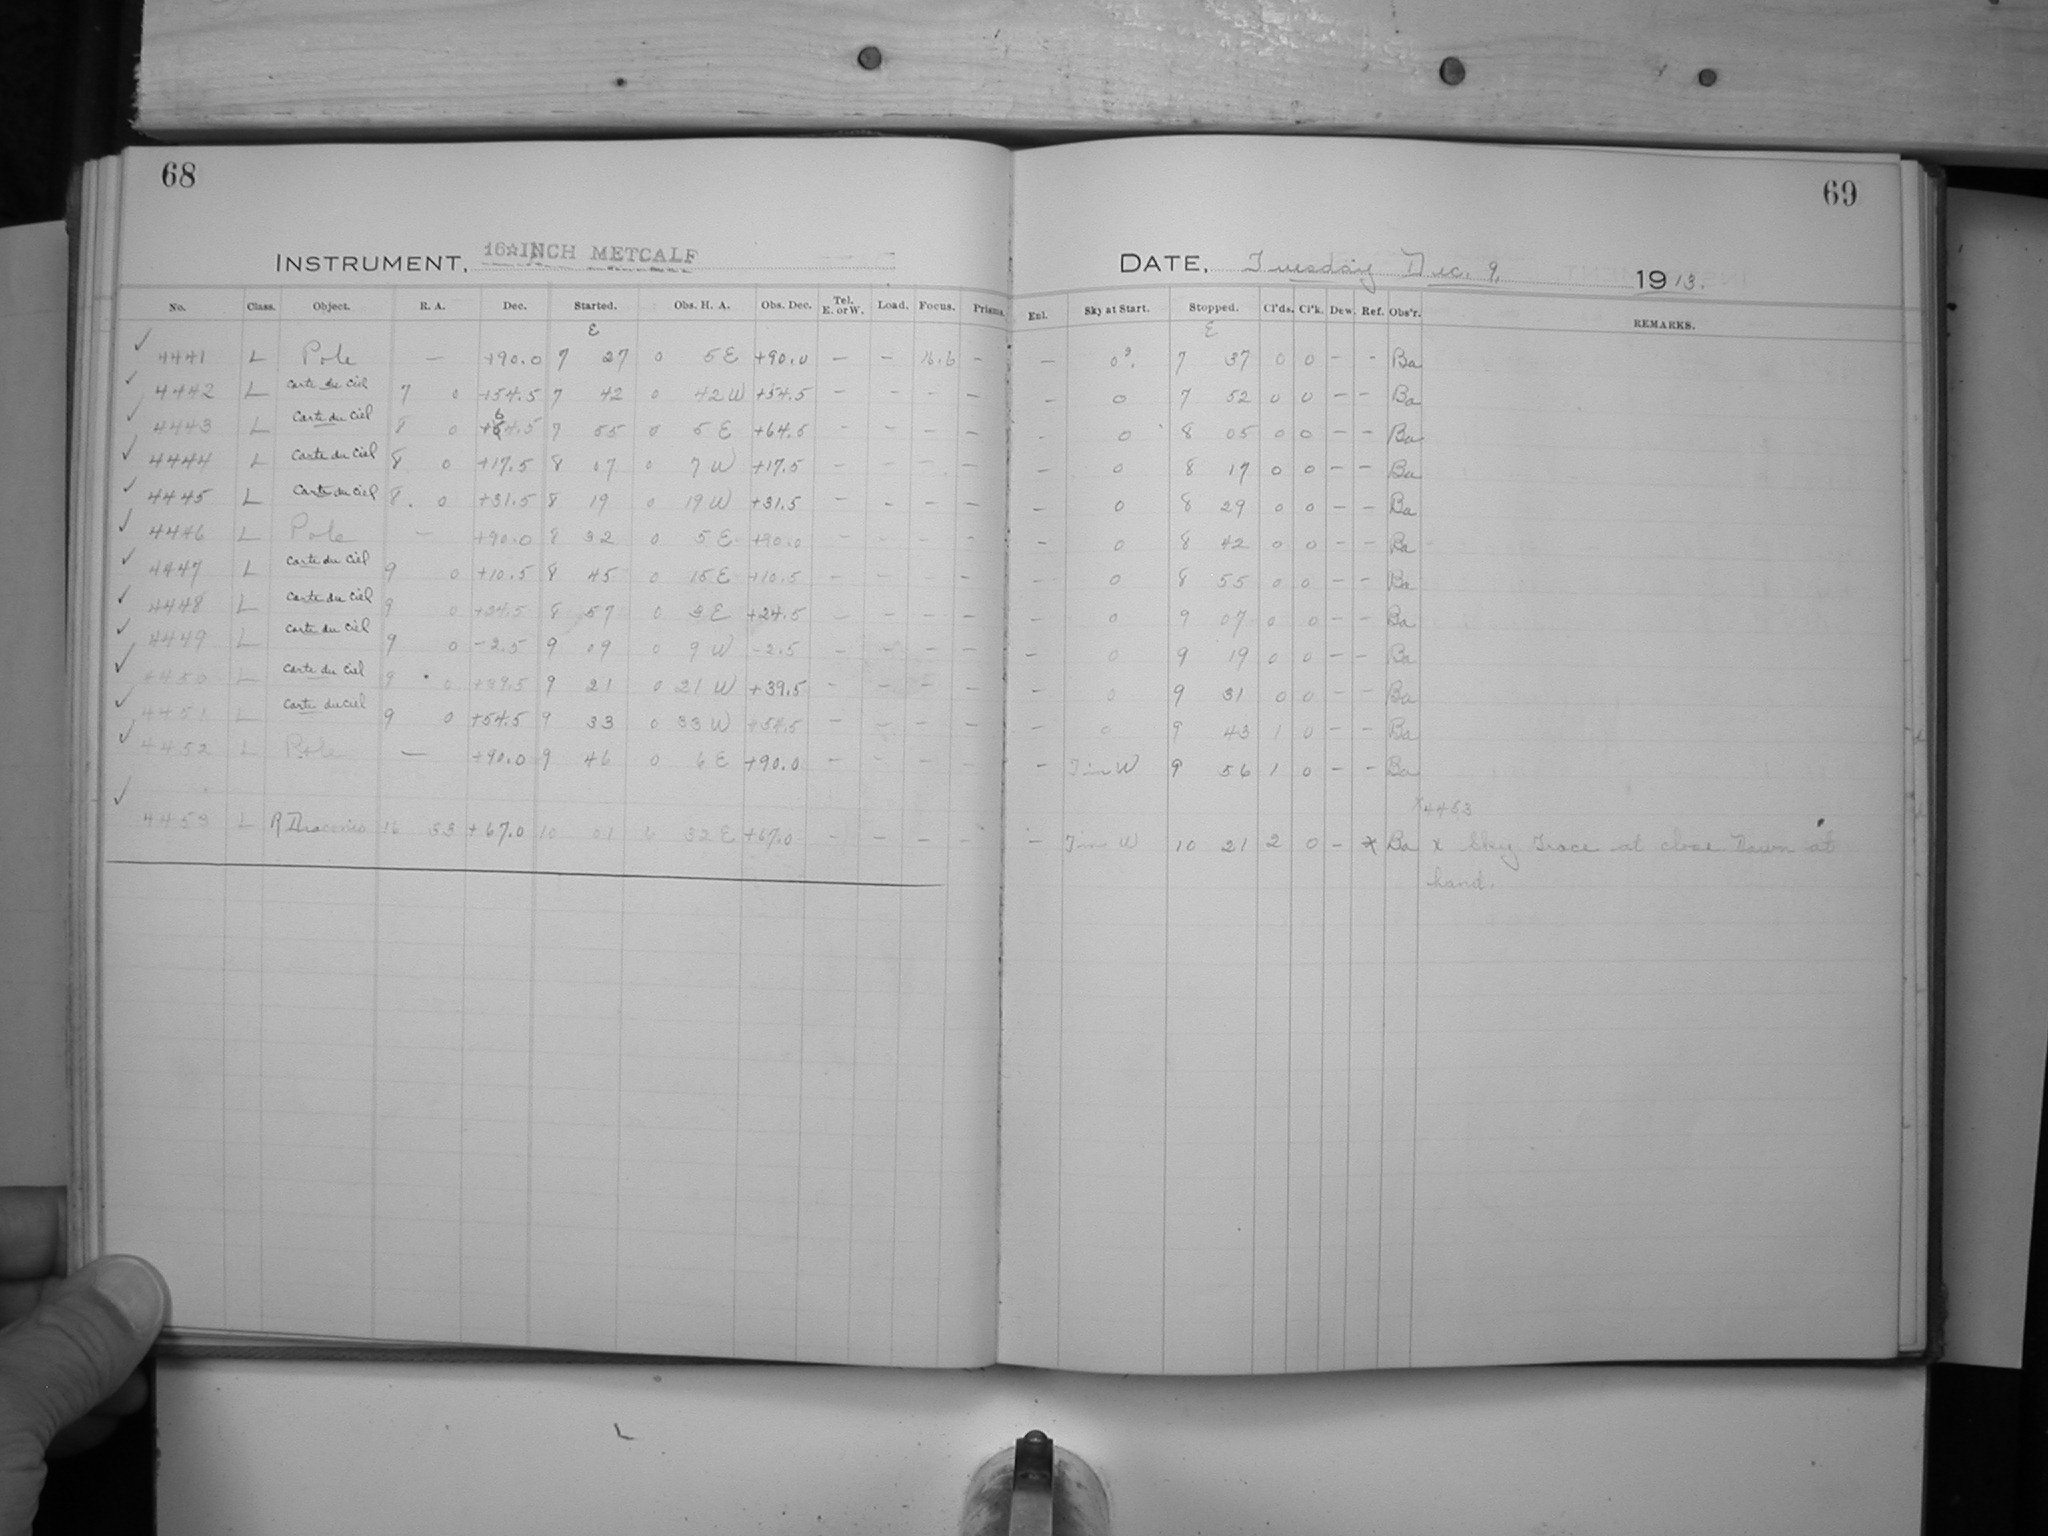 68
INSTRUMENT, 16-INCH METCALF
No. Class. Object. R. A. Dec. Started. Obs. H. A. Obs. Dec. Tel. E. or W. Load. Focus. Prisms.
E
4441 L Pole — +90.0 7 27 0 5 E +90.0 — — 16.6 —
4442 L Carte du Ciel 7 0 +54.5 7 42 0 42 W +54.5 — — — —
4443 L Carte du Ciel 8 0 +64.5 7 55 0 5 E +64.5 — — — —
4444 L Carte du Ciel 8 0 +17.5 8 07 0 7 W +17.5 — — — —
4445 L Carte du Ciel 8 0 +31.5 8 19 0 19 W +31.5 — — — —
4446 L Pole — +90.0 8 32 0 5 E +90.0 — — — —
4447 L Carte du Ciel 9 0 +10.5 8 45 0 15 E +10.5 — — — —
4448 L Carte du Ciel 9 0 +24.5 8 57 0 3 E +24.5 — — — —
4449 L Carte du Ciel 9 0 -2.5 9 09 0 9 W -2.5 — — — —
4450 L Carte du Ciel 9 0 +39.5 9 21 0 21 W +39.5 — — — —
4451 L Carte du Ciel 9 0 +54.5 9 33 0 33 W +54.5 — — — —
4452 L Pole — +90.0 9 46 0 6 E +90.0 — — — —
4453 L R Draconis 16 33 +67.0 10 01 6 32 E +67.0 — — — —
69
DATE, Tuesday Dec. 9, 1913.
Enl. Sky at Start. Stopped. Cl'ds. Cl'k. Dew. Ref. Obs'r. REMARKS.
E
— 0?. 7 37 0 0 — - Ba
— 0 7 52 0 0 — — Ba
- 0 8 05 0 0 — — Ba
— 0 8 17 0 0 — — Ba
— 0 8 29 0 0 — — Ba
— 0 8 42 0 0 — — Ba
— 0 8 55 0 0 — — Ba
— 0 9 07 0 0 — — Ba
— 0 9 19 0 0 — — Ba
— 0 9 31 0 0 — — Ba
— 0 9 43 1 0 — — Ba
— W 9 56 1 0 — — Ba
x4453
— W 10 21 2 0 — x Ba x Sky Trace at close. Dawn at
hand.